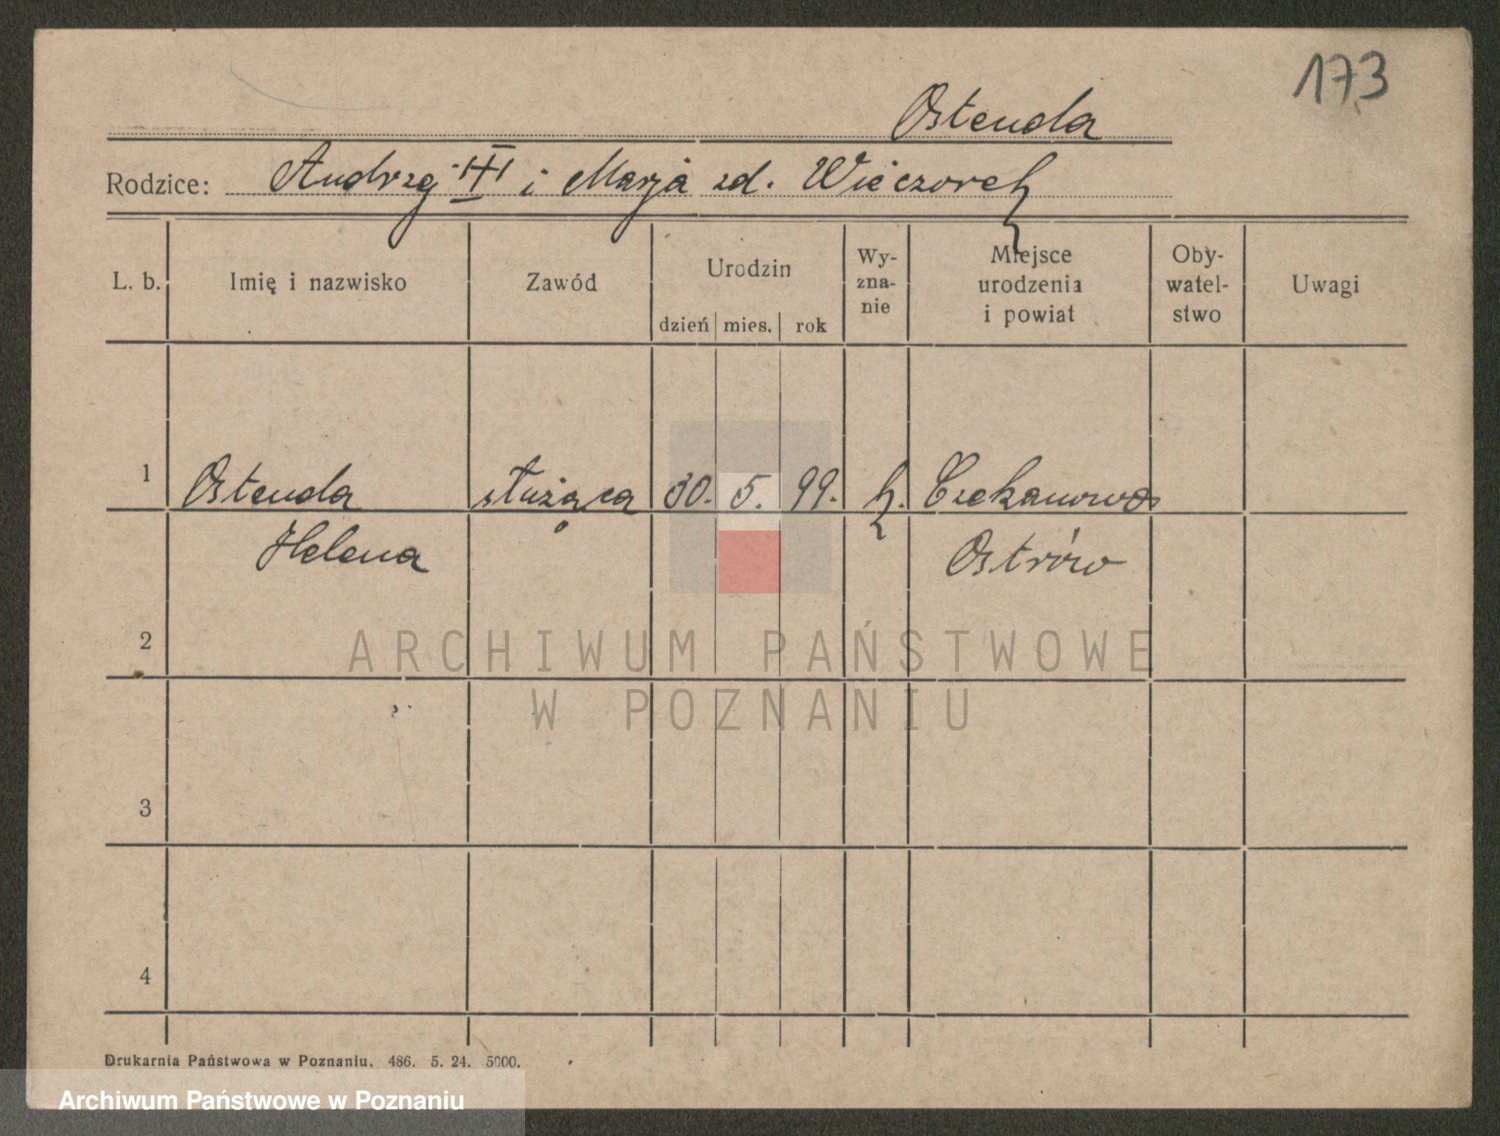 173
Ostenda
Rodzice: Andrzej III i Marja zd. Wieczorek
L. b. Imię i nazwisko Zawód Urodzin dzień mies. rok Wy-zna-nie Miejsce urodzenia i powiat Oby-watel-stwo Uwagi
1 Ostenda służąca 30. 5. 99. k. Czekanowo
Helena Ostrów
2
ARCHIWUM PAŃSTWOWE
W POZNANIU
3
4
Drukarnia Państwowa w Poznaniu. 486. 5. 24. 5000.
Archiwum Państwowe w Poznaniu